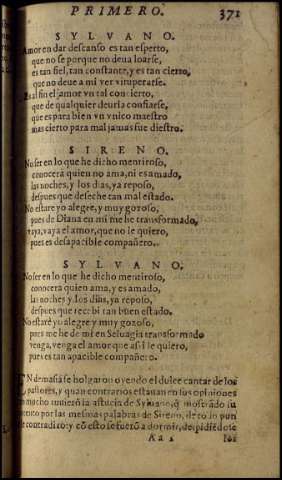 PRIMERO. 371
SYLVANO.
Amor en dar descanso es tan esperto,
que no se porque no deua loarse,
es tan fiel, tan constante, y es tan cierto,
que no deue a mi ver vituperarse.
Es al fin el amor vn tal concierto,
que de qualquier deuria confiarse,
que es para bien vn vnico maestro
mas cierto para mal jamas fue diestro.
SIRENO.
No ser en lo que he dicho mentiroso,
conocera quien no ama, ni es amado,
las noches, y los dias, ya reposo,
despues que deseche tan mal estado.
No estare yo alegre, y muy gozoso,
pues de Diana en mi me he transformado,
vaya, vaya el amor, que no le quiero,
pues es desapacible compañero.
SYLVANO.
No ser en lo que he dicho mentiroso,
conocera quien ama, y es amado,
las noches y los dias, ya reposo,
despues que recebi tan buen estado.
No estaré yo alegre y muy gozoso,
pues me he de mi en Seluagia transformado
venga, venga el amor que assi le quiero,
pues es tan apacible compañero.
EN demasia se holgaron oyendo el dulce cantar de los
pastores, y quan contrarios estauan en sus opiniones
mucho la astucia de Syluano, q̃ mostrado su
por las mesmas palabras de Sireno, de to lo pun
contradixo: y cõ esto se a dormir,
Aa 2